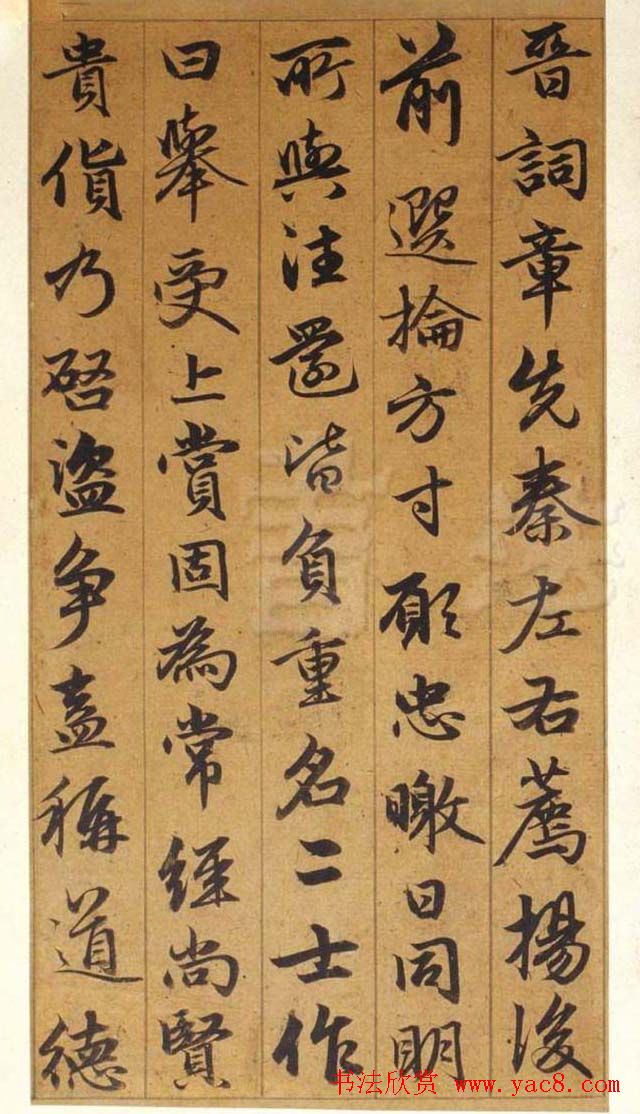 晋詞章先秦左右薦揚後
前選掄方寸願忠暾日同明
所與注還皆負重名二士作
曰舉受上賞固為常經尚賢
貴貨乃啓盜争盍稱道德
书法欣赏 www.yac8.com